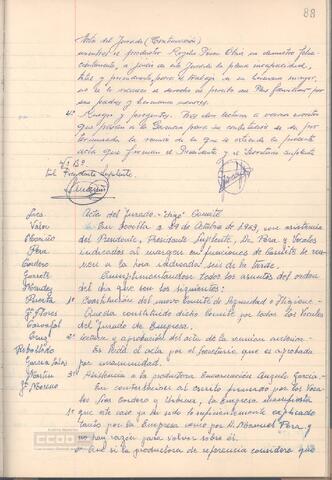 88
Acta del Jurado (Continuación)
mientras el productor Rogelio Pérez no demuestre feha-
cientemente, a juicio de este Jurado la plena incapacidad,
total y permanente, para el trabajo de su hermano mayor,
no se le reconoce el derecho a percibir un Plus familiar por
sus padres y hermanos menores.
4º Ruegos y preguntas. Tras dar lectura a varios escritos
que pasan a la Gerencia para su contestación se da por
terminada la reunión de la que se extiende la presente
acta que firman el Presidente y el Secretario suplente
Vº Bº
El Presidente Suplente,
Sres. Acta del Jurado Comité
En Sevilla a 29 de Octubre de 1963, con asistencia
del Presidente, Presidente Suplente, Sr. Pera y Vocales
Pera indicados al margen en funciones de Comité se reu-
Cordero nen a la hora indicada seis de la tarde.
Garrote Cumplimentándose todos los asuntos del orden
Mendez del día que son los siguientes:
Puerta 1º Constitución del nuevo Comité de Seguridad e Higiene.
Queda constituido dicho Comité por todos los Vocales
Carvajal del Jurado de Empresa.
Cruz 2º Lectura y aprobación del acta de la reunión anterior.
Rebolledo Es leída el acta por el Secretario que es aprobada
por unanimidad.
Martín 3º Asistencia a la productora Encarnación Angulo García.
Moreno En contestación al escrito firmado por los Voca-
les Sres Cordero y Urbina, la Empresa manifiesta
1º que este caso ya ha sido lo suficientemente explicado
tanto por la Empresa como por D. Manuel Pera, y
no hay razón para volver sobre él.
2º Que si la productora de referencia considera que
CCOO